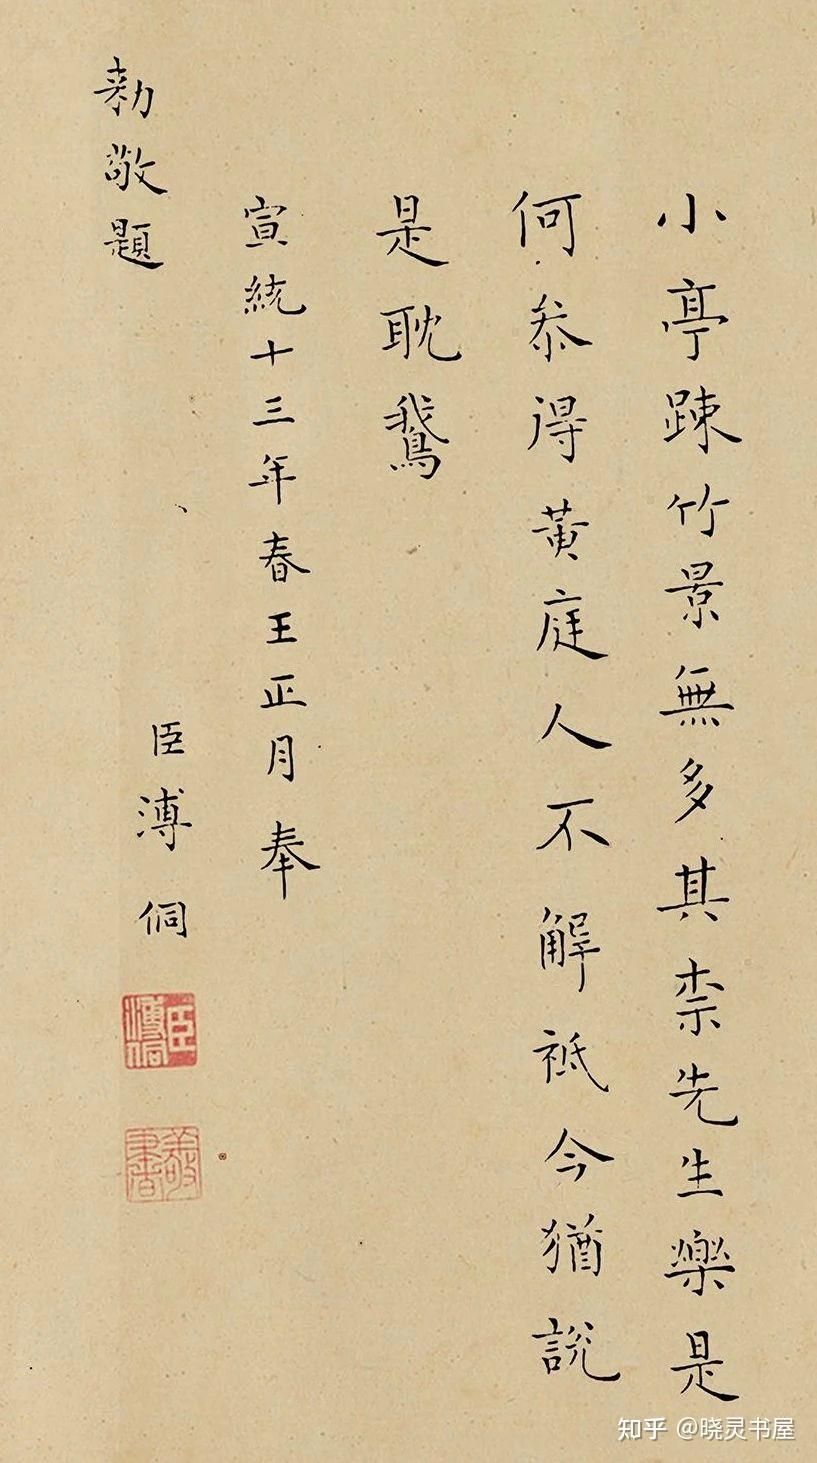 小亭踈竹景無多其柰先生樂是
何叅得黄庭人不解祇今猶說
是耽鵞
宣統十三年春王正月奉
敕敬題
臣溥侗
臣溥侗
敬書
知乎 @晓灵书屋